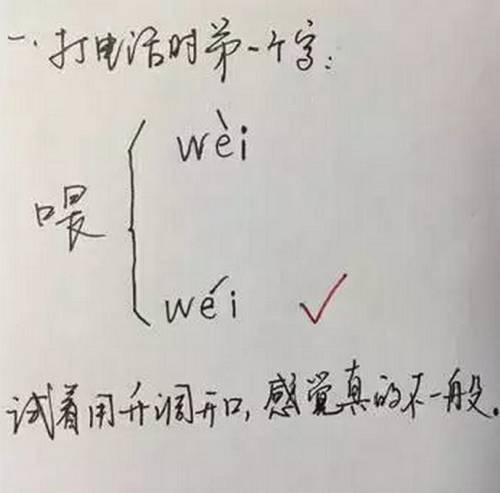 一、打电话时第一个字:
wèi
喂
wéi ✓
试着用升调开口,感觉真的不一般。